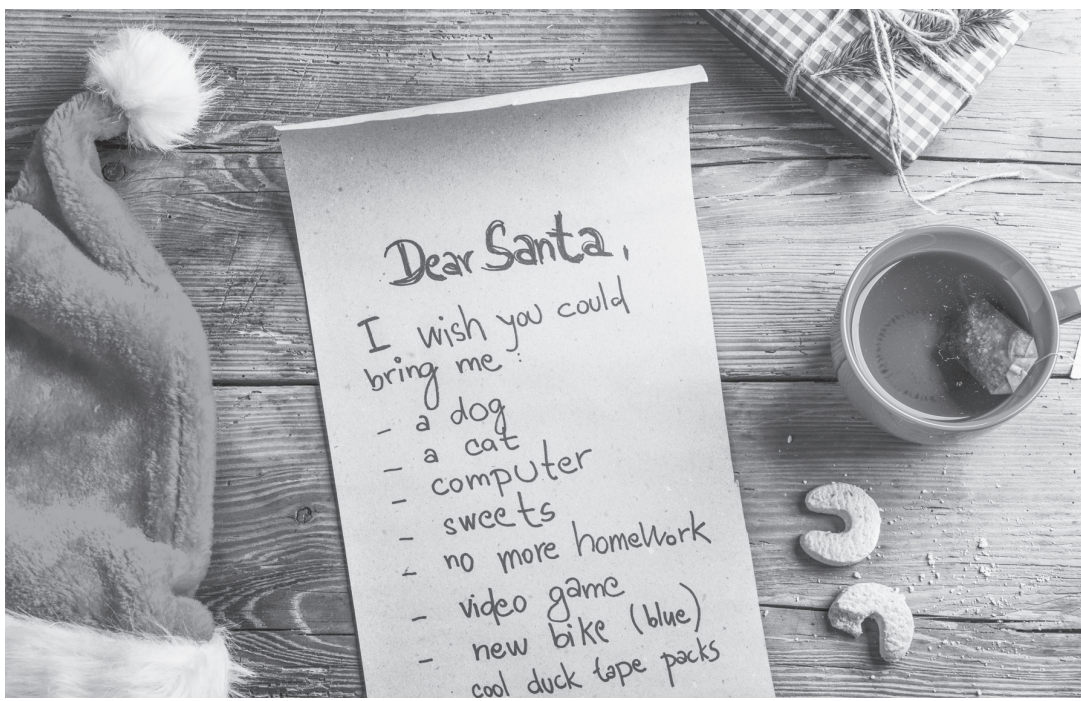 Dear Santa,
I wish you could
bring me:
- a dog
- a cat
- computer
- sweets
- no more homework
- video game
- new bike (blue)
cool duck tape packs